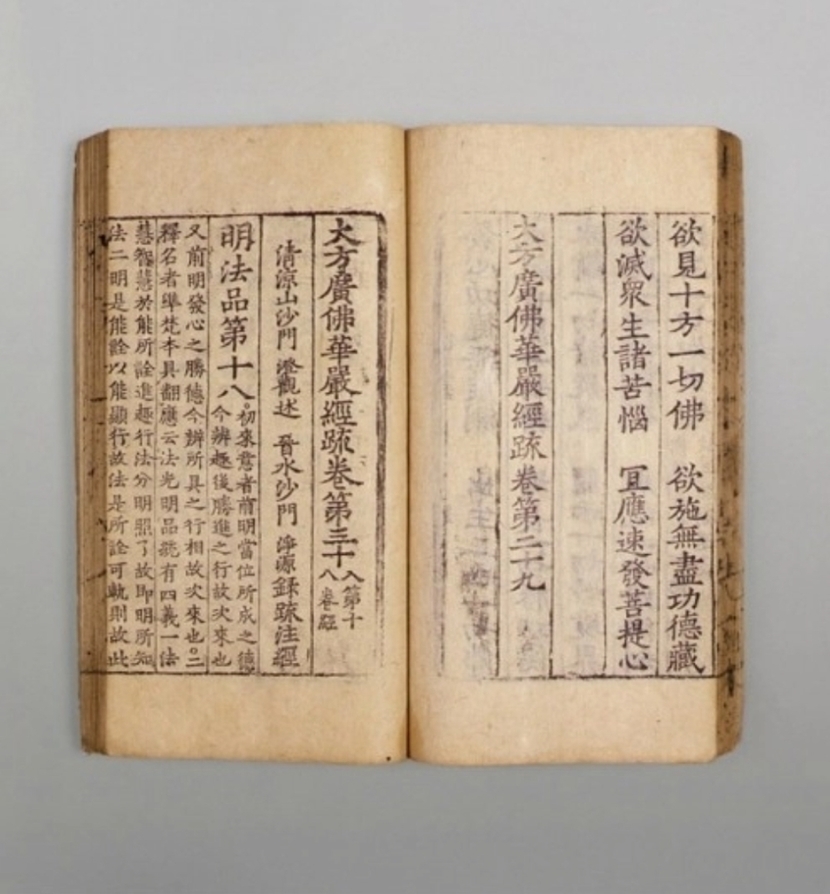 欲見十方一切佛　欲施無盡功德藏
欲滅眾生諸苦惱　冝應速發菩提心
大方廣佛華嚴經䟽卷第二十九
大方廣佛華嚴經䟽卷第三十
入第十
八卷經
清涼山沙門　澄觀述　晉水沙門　淨源錄䟽注經
明法品第十八
初來意者前明當位所成之德
今辨趣後勝進之行故次來也
又前明發心之勝德今辨所具之行相故次來也二
釋名者準梵本具翻應云法光明品統有四義一法
慧智慧於能所詮進趣行法分明照了故即明所知
法二明是能詮以能顯行故法是所詮可軌則故此